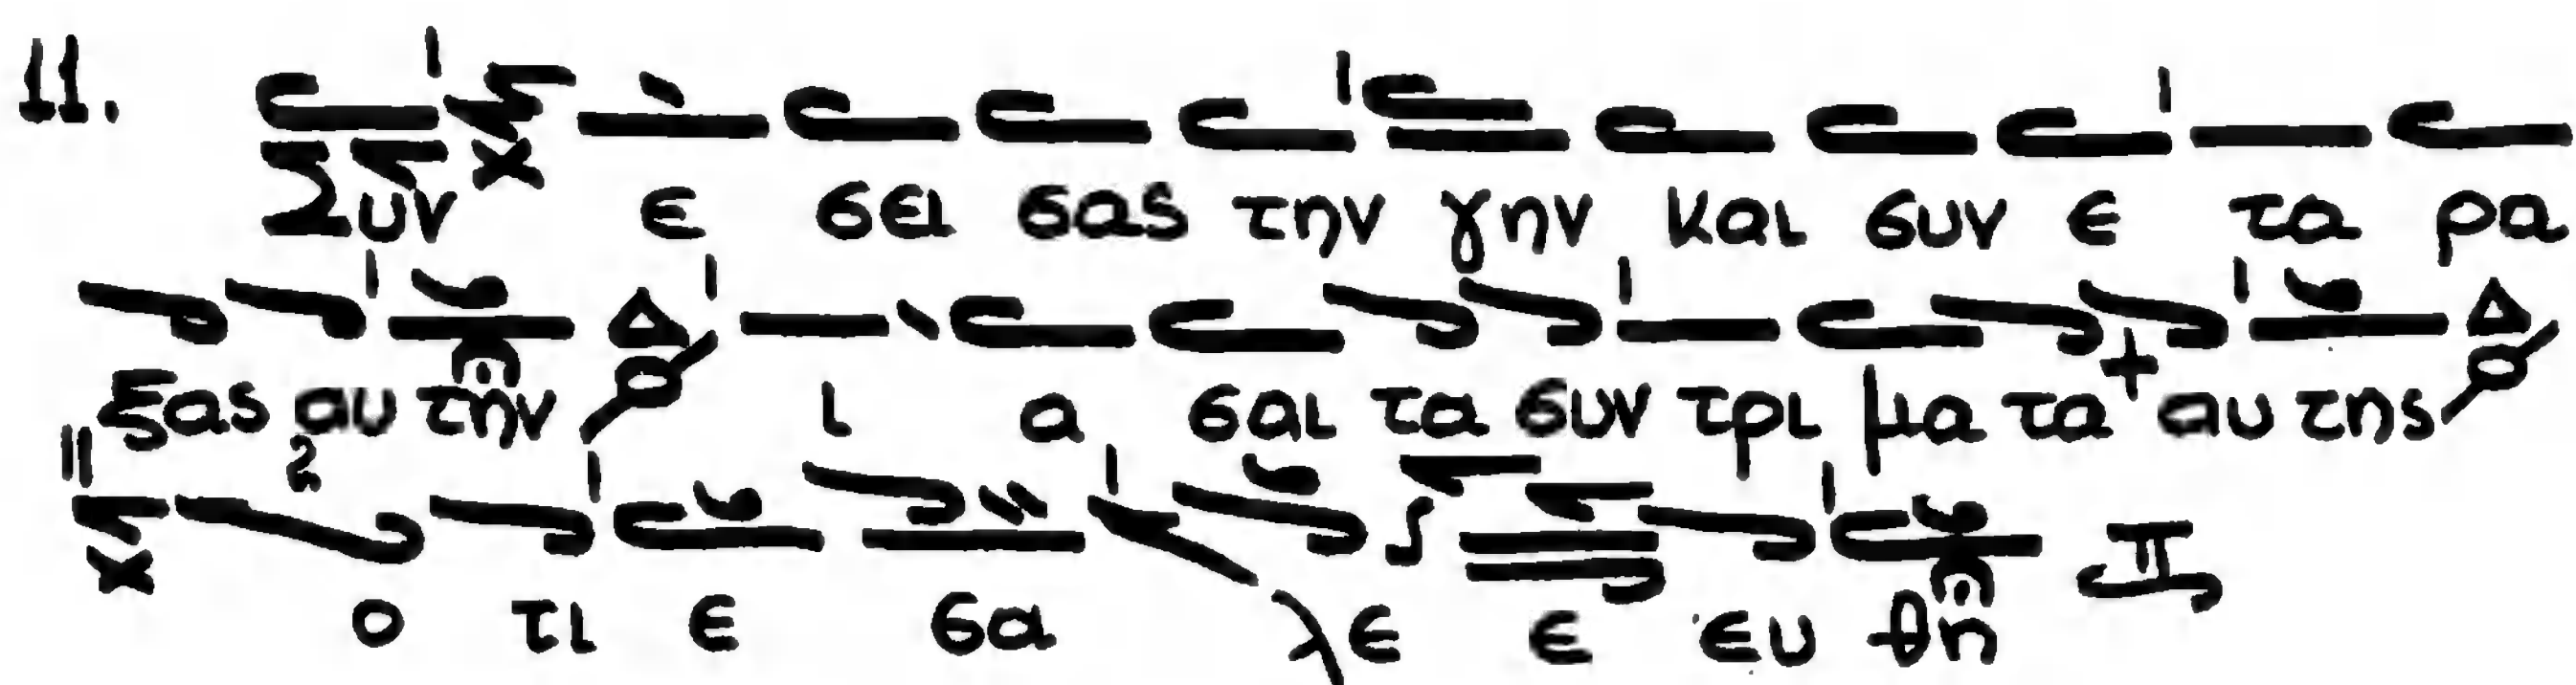 11. Συν ε σει σας την γην και συν ε τα ρα
ξας αυ την ι α σαι τα συν τρι μα τα αυ της
ο τι ε σα λε ε ευ θη